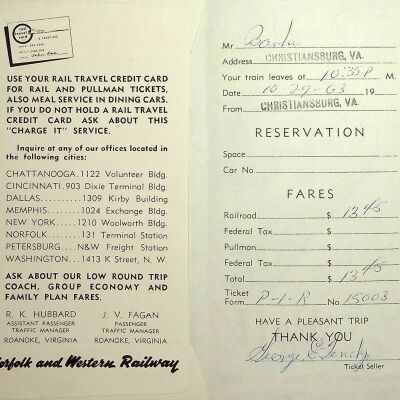 USE YOUR RAIL TRAVEL CREDIT CARD
FOR RAIL AND PULLMAN TICKETS,
ALSO MEAL SERVICE IN DINING CARS.
IF YOU DO NOT HOLD A RAIL TRAVEL
CREDIT CARD ASK ABOUT THIS
"CHARGE IT" SERVICE.
Inquire at any of our offices located in
the following cities:
CHATTANOOGA.1122 Volunteer Bldg.
CINCINNATI.903 Dixie Terminal Bldg.
DALLAS..........1309 Kirby Building
MEMPHIS......1024 Exchange Bldg.
NEW YORK....1210 Woolworth Bldg.
NORFOLK........131 Terminal Station
PETERSBURG...N&W Freight Station
WASHINGTON...1413 K Street, N. W.
ASK ABOUT OUR LOW ROUND TRIP
COACH, GROUP ECONOMY AND
FAMILY PLAN FARES.
R. K. HUBBARD
ASSISTANT PASSENGER
TRAFFIC MANAGER
ROANOKE, VIRGINIA
J. V. FAGAN
PASSENGER
TRAFFIC MANAGER
ROANOKE, VIRGINIA
Norfolk and Western Railway
Mr.
Address CHRISTIANSBURG, VA.
Your train leaves at 10:35 P M.
Date 10-29-63 19
From CHRISTIANSBURG, VA.
RESERVATION
Space
Car No.
FARES
Railroad $ 13.45
Federal Tax $
Pullman $
Federal Tax $
Total $ 13.45
Ticket
Form P-1-R No. 15003
HAVE A PLEASANT TRIP
THANK YOU
George E.
Ticket Seller